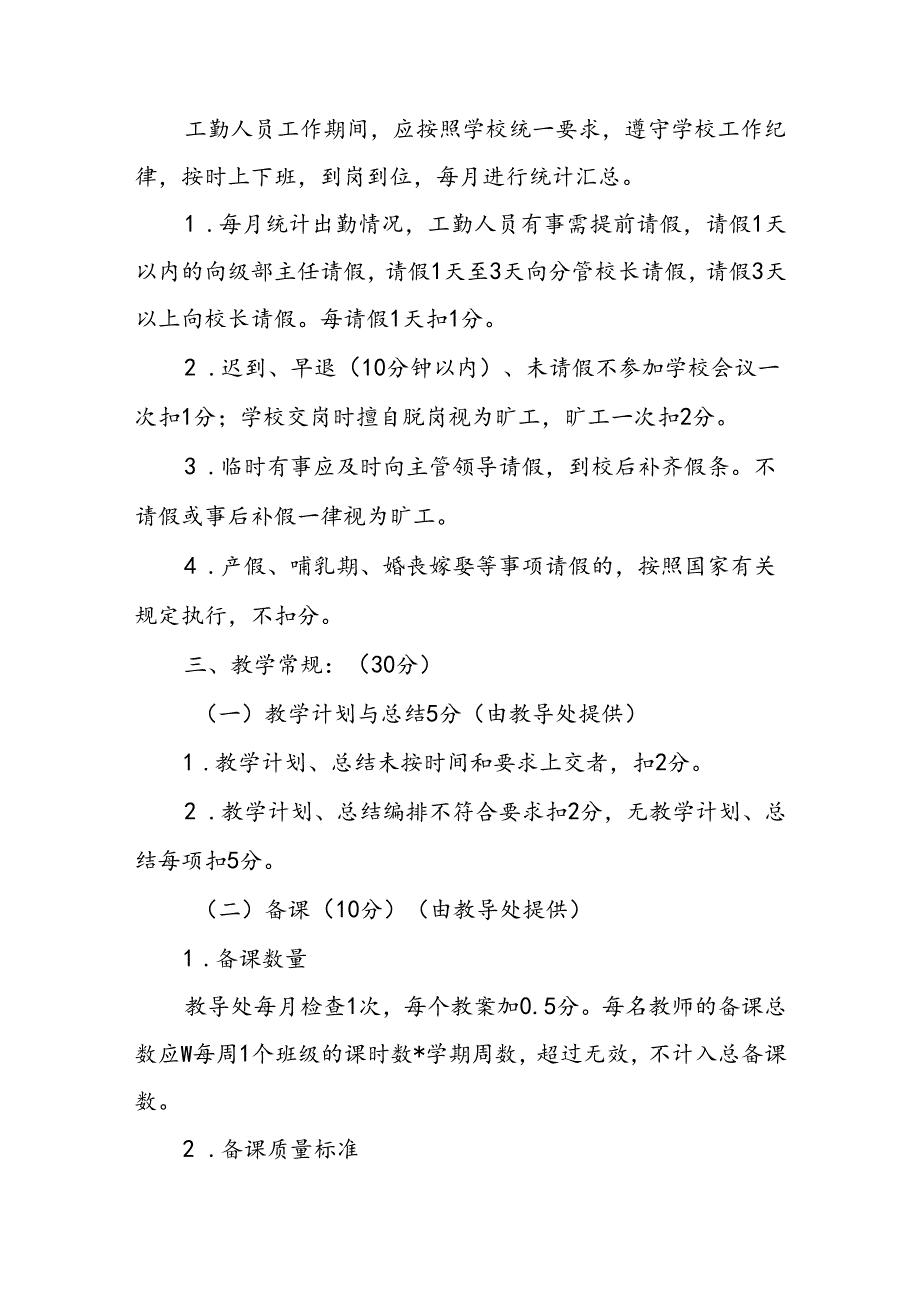 工勤人员工作期间，应按照学校统一要求，遵守学校工作纪
律，按时上下班，到岗到位，每月进行统计汇总。
1 .每月统计出勤情况，工勤人员有事需提前请假，请假1天
以内的向级部主任请假，请假1天至3天向分管校长请假，请假3天
以上向校长请假。每请假1天扣1分。
2 .迟到、早退（10分钟以内）、未请假不参加学校会议一
次扣1分；学校交岗时擅自脱岗视为旷工，旷工一次扣2分。
3 .临时有事应及时向主管领导请假，到校后补齐假条。不
请假或事后补假一律视为旷工。
4 .产假、哺乳期、婚丧嫁娶等事项请假的，按照国家有关
规定执行，不扣分。
三、教学常规：（30分）
（一）教学计划与总结5分（由教导处提供）
1 .教学计划、总结未按时间和要求上交者，扣2分。
2 .教学计划、总结编排不符合要求扣2分，无教学计划、总
结每项扣5分。
（二）备课（10分）（由教导处提供）
1 .备课数量
教导处每月检查1次，每个教案加0.5分。每名教师的备课总
数应W每周1个班级的课时数*学期周数，超过无效，不计入总备课
数。
2 .备课质量标准